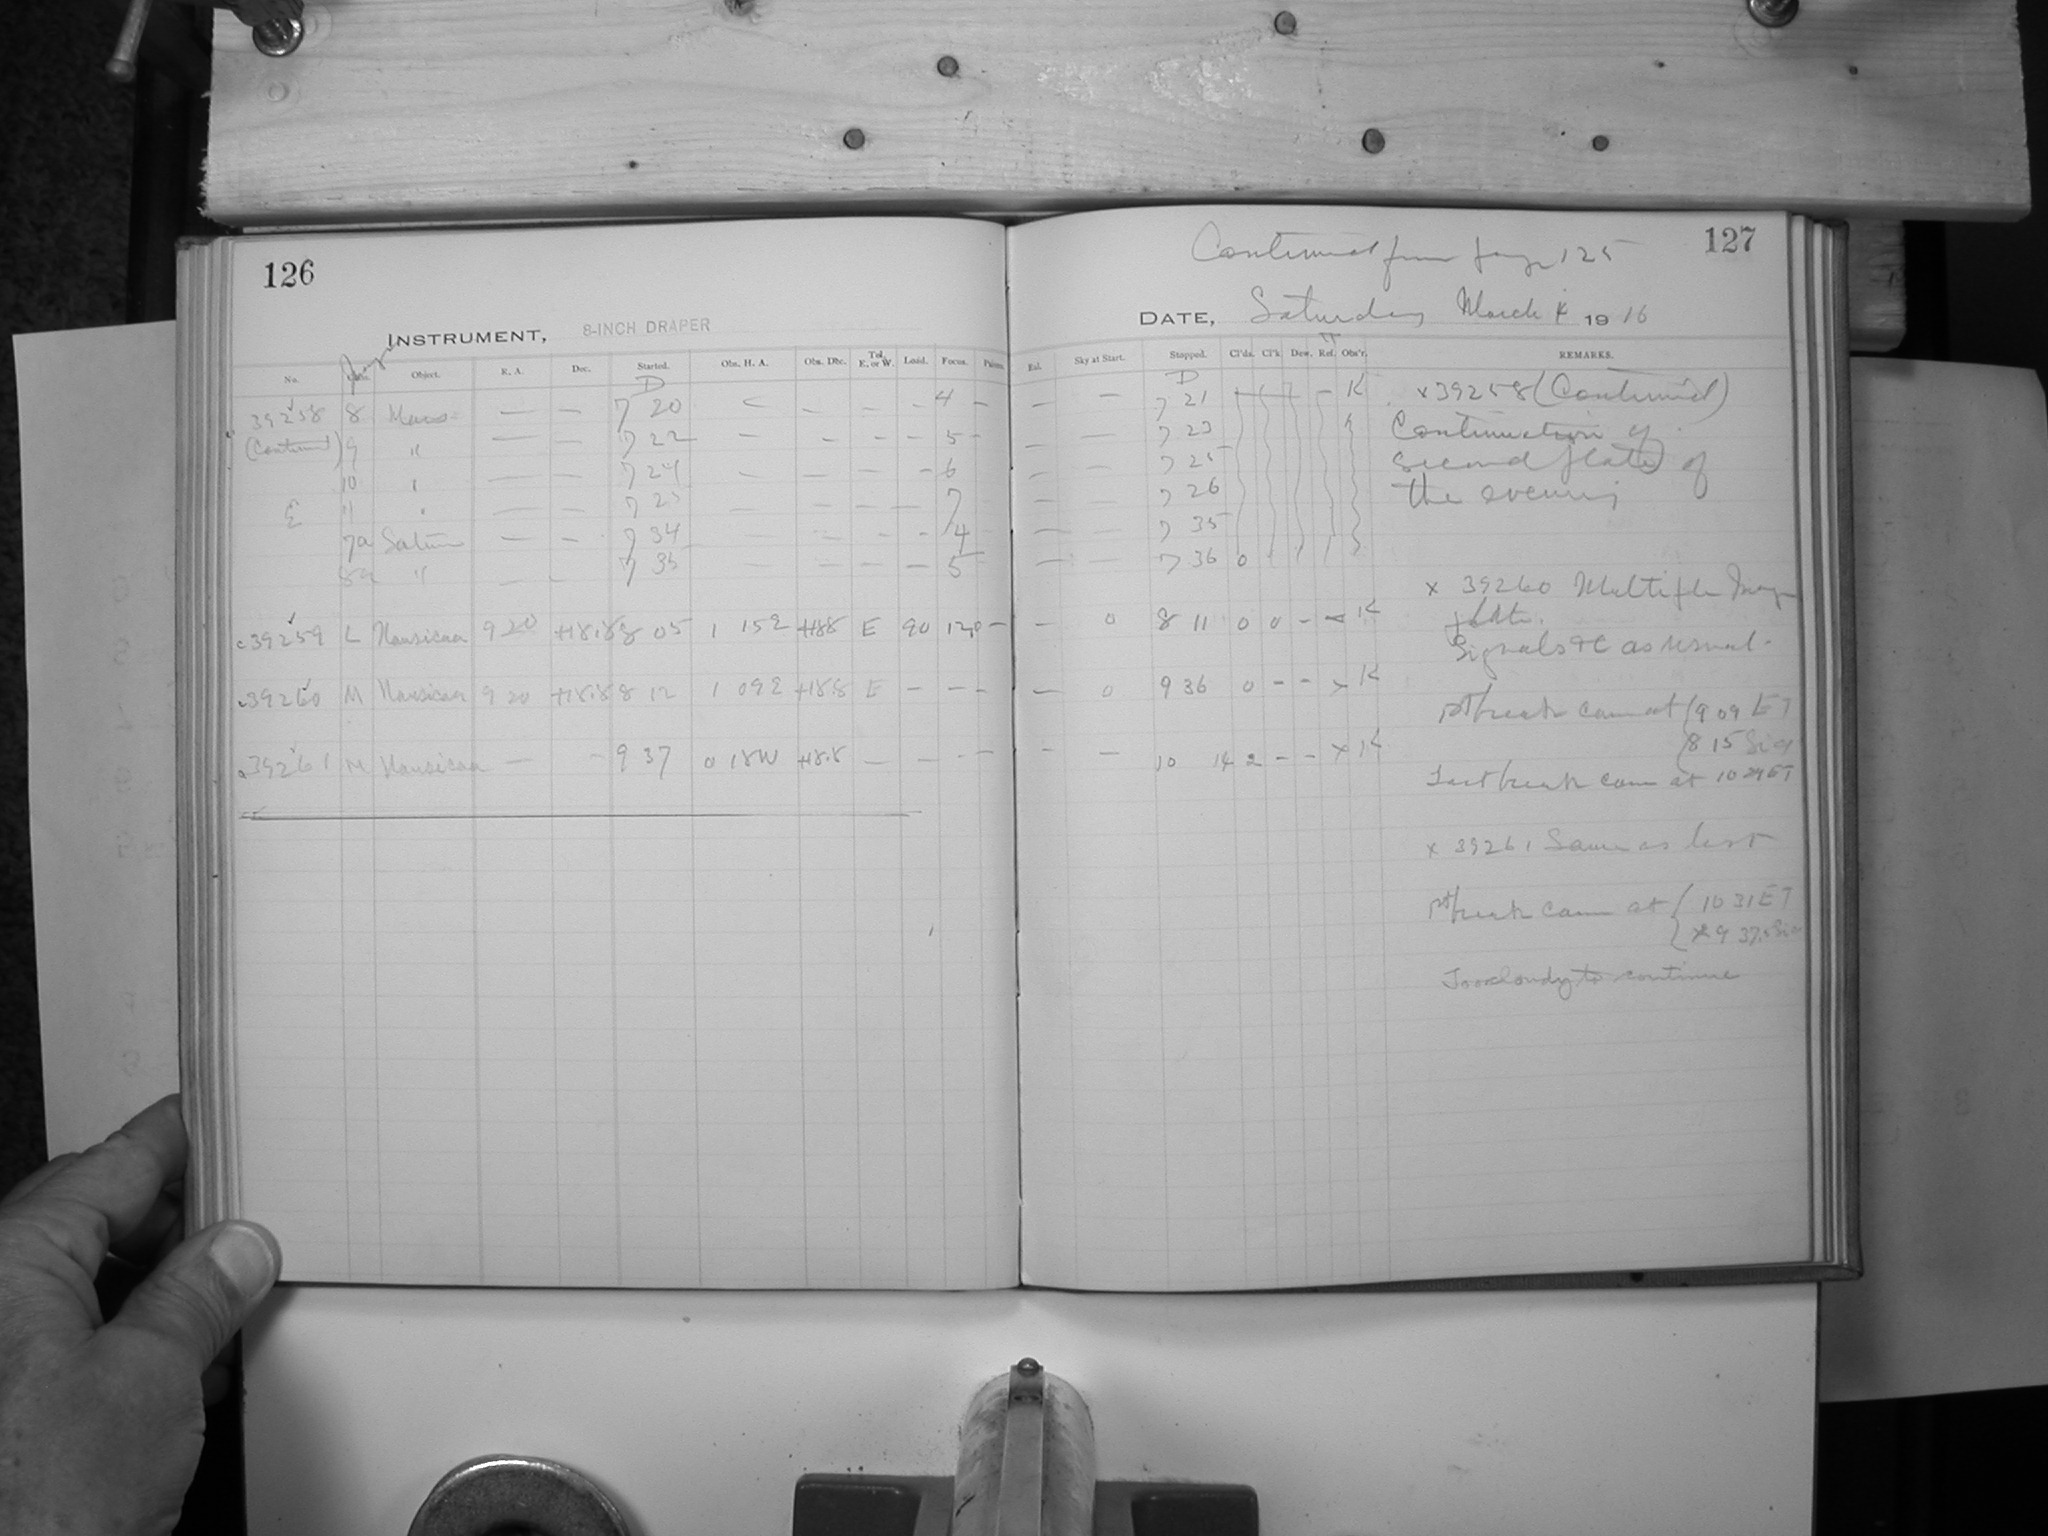 126
INSTRUMENT, 8-INCH DRAPER
No. Object. R. A. Dec. Started. Obs. H. A. Obs. Dec. Tel. E. or W. Load. Focus.
D
39258 8 Mars — — 7 20 — — — 4 —
(Continued) 9 " — — 7 22 — — — — 5 —
10 " — — 7 24 — — — — 6
11 " — — 7 25 — — — — 7
7a Saturn — — 7 34 — — — 4
8a " — — 7 35 — — — — 5 —
39259 L Nausicaa 9 20 +18.8 8 05 1 15 E +18.8 E 90 12.0 —
39260 M Nausicaa 9 20 +18.8 8 12 1 09 E +18.8 E — — —
39261 M Nausicaa — — 9 37 0 18 W +18.8 — — — —
Continued from page 125
127
DATE, Saturday March 4 1916
Exl. Sky at Start. Stopped. Cl'ds. Cl'k Dew. Ref. Obs'r. REMARKS.
D
— — 7 21 — K
— — 7 23
— — 7 25
— — 7 26
— — 7 35
— — 7 36 0
— 0 8 11 0 0 — — K
— 0 9 36 0 — — x K
— — 10 14 2 — — x K
x 39258 (Continued)
Continuation of
second plate of
the evening
x 39260 Multiple Image
plate.
Signals &c as usual.
1st break came at 9 09 ET
8 15 Sig
Last break came at 10 29 ET
x 39261 Same as last
1st break came at 10 31 ET
9 37.5 Sig
Too cloudy to continue